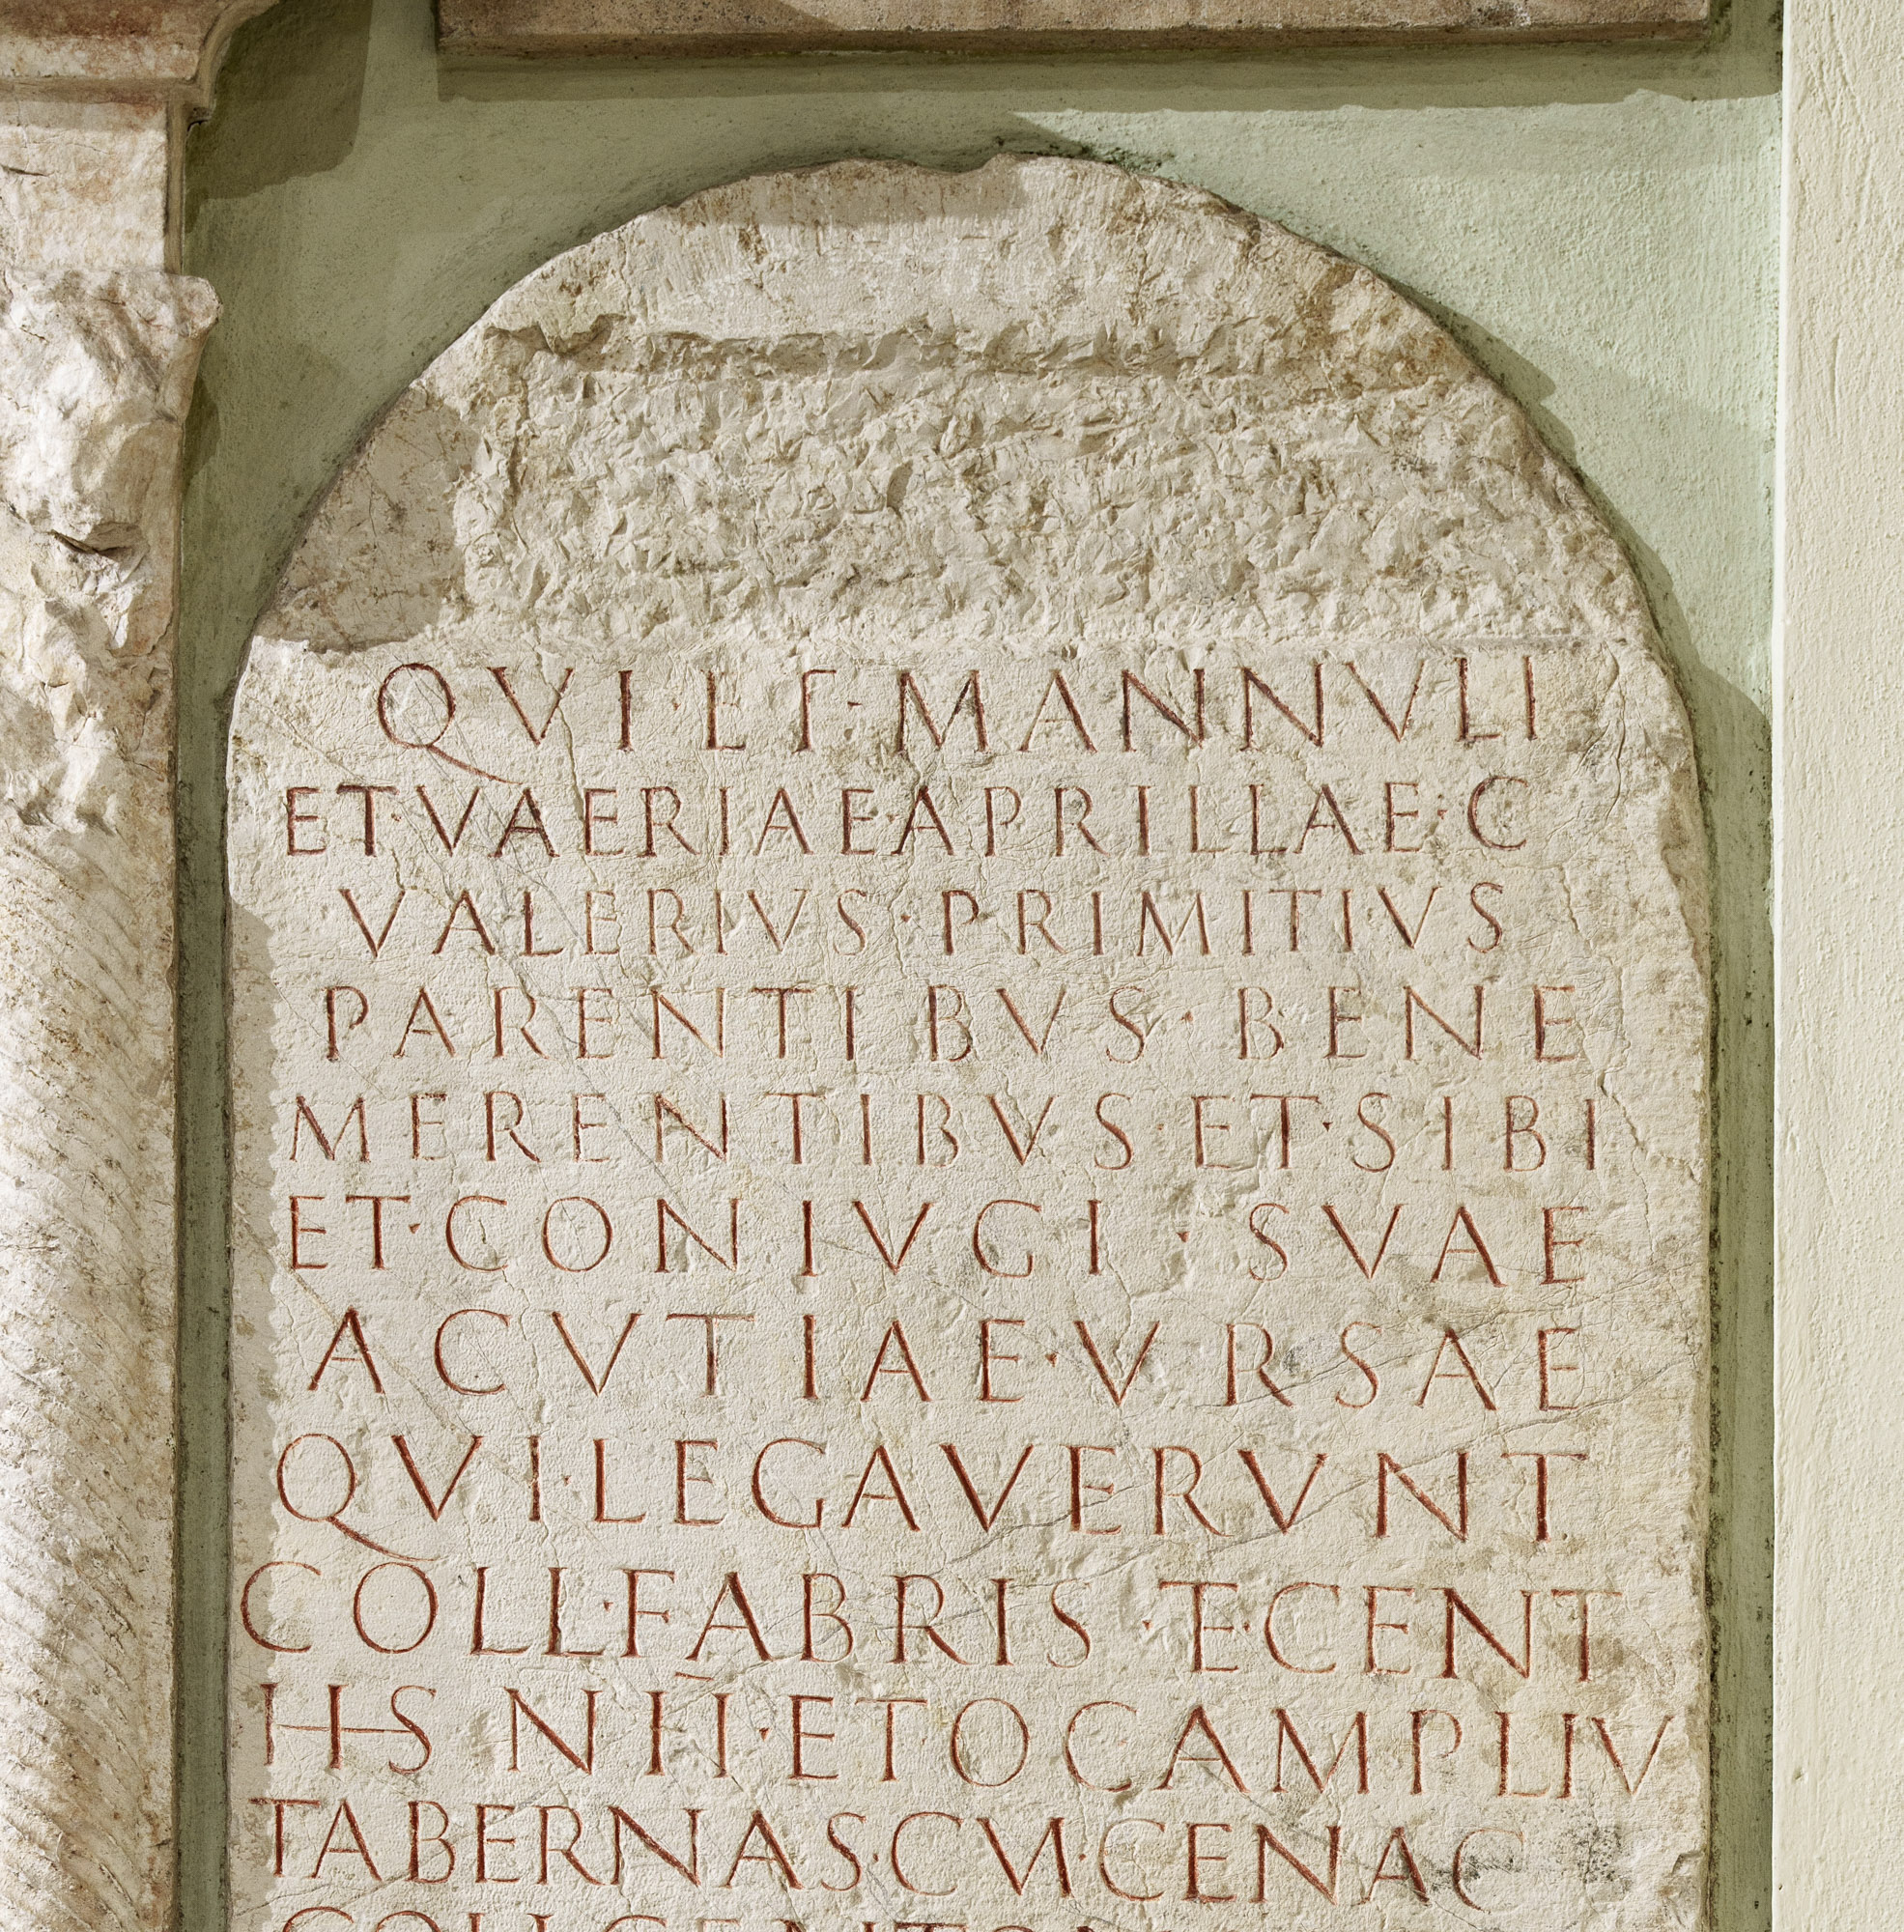 QVI·LT·MANNVLI
ET·VAERIAE·APRILLAE·C
VALERIVS·PRIMITIVS
PARENTIBVS·BENE
MERENTIBVS·ET·SIBI
ET·CONIVGI·SVAE
ACVTIAE·VRSAE
QVI·LEGAVERVNT
COLL·FABRIS·ET·CENT
HS N II·ET OC AMPLIV
TABERNAS·CVM·CENAC